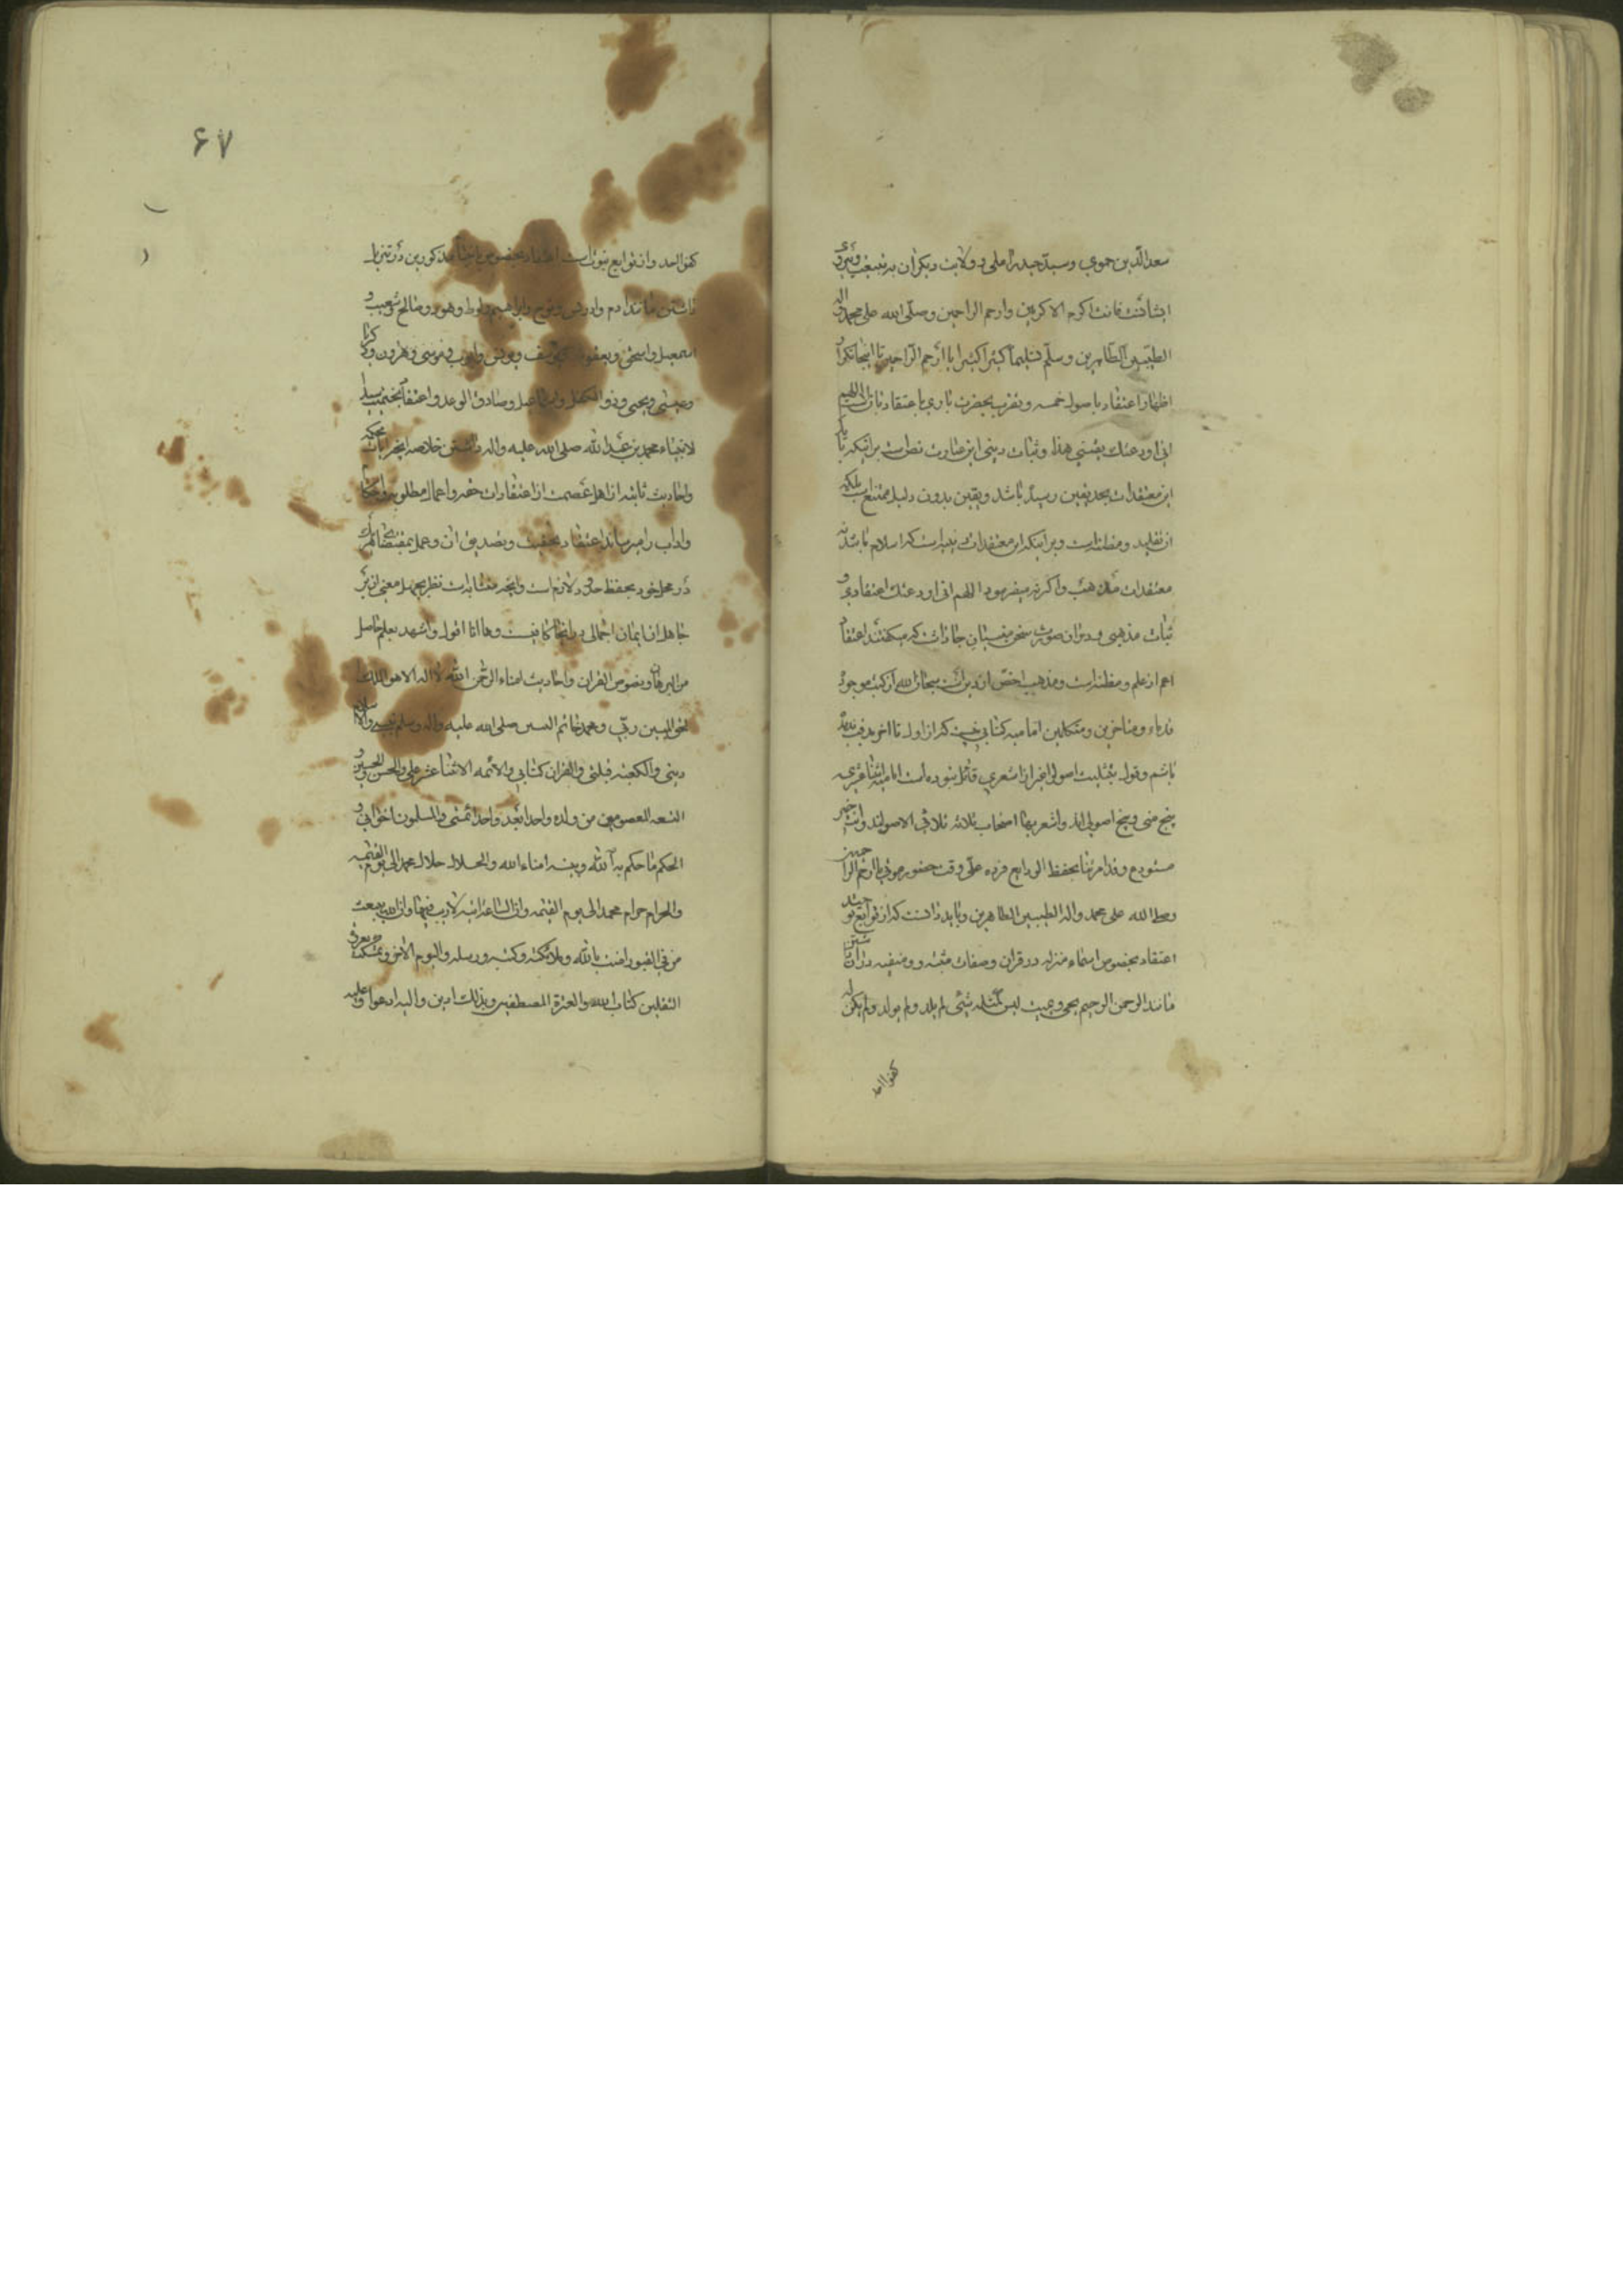 سعد الدین حموی و سید حیدر آملی در ولایت و دیگران به تبعیت و پیروی
ایشان فانت اکرم الاکرمین وارحم الراحمین وصلی الله علی محمد واله
الطیبین الطاهرین وسلم تسلیما کثیرا کثیرا یا ارحم الراحمین تا اینجا
اظهار اعتقاد باصول خمسه و تقرب بحضرت باری با عتقاد اللهم
انی اودعتک یقینی هذا وثبات دینی این عبارت نص است بر اینکه باید
این معتقدات بحد یقین رسیده باشد و یقین بدون دلیل ممتنع است بلکه
از تقلید و مظنه است و بر اینکه این معتقدات دینیه است که اسلام باشد نه
معتقدات مذهب واگرنه میفرمود اللهم انی اودعتک اعتقادی و
ثبات مذهبی و در آن صورت سخن جا داشت که میگفتند اعتقاد
اعم از علم و مظنه است و مذهب اخص از دین سبحان الله از کتب موجود
قدماء و متاخرین و متکلمین امامیه کتابی نیست که از اول تا آخر ندیده
باشم و قول بتثلیث اصول غیر از اشعری قائل نبوده است امامیه اثنا عشری
پنج منی و پنج اصولی اند واشعریها اصحاب ثلاثه ثلاثی الاصولند وانت خیر
مستودع وقد امرتنا بحفظ الودایع فرده علی وقت حضور موتی یا ارحم الراحمین
وصلی الله علی محمد واله الطیبین الطاهرین و باید دانست که از توابع توحید
اعتقاد بخصوص اسماء منزله در قرآن و صفات مثبته و منفیه در آن داشتن
مانند الرحمن الرحیم یحیی و یمیت لیس کمثله شیئ لم یلد ولم یولد ولم یکن له
کفوا احد
۶۷
کفوا احد واز توابع نبوت است اعتقاد بخصوص انبیاء مذکورین در تنزیل
داشتن مانند آدم وادریس ونوح وابراهیم ولوط وهود وصالح وشعیب و
اسمعیل واسحق ویعقوب ویوسف ویونس وایوب وموسی وهرون وزکریا
وعیسی ویحیی وذوالکفل واسماعیل وصادق الوعد واعتقاد بختمیت سید
لانبیاء محمد بن عبدالله صلی الله علیه واله داشتن خلاصه انچه از آیات محکمه
واحادیث ثابته از اهل عصمت از اعتقادات حقه واعمال مطلوبه واحکام
واداب رامیرساند اعتقاد بحقیت وتصدیق ان وعمل بمقتضای هر یک
در محل خود بحفظ حدود لازم است وانچه متشابه است نظر بجهل معنی ان بر
جاهل ان ایمان اجمالی در اینجا کافیست وها انا اقول واشهد بعلم حاصل
من البرهان ونصوص القران واحادیث امناء الرحمن ان الله لا اله الا هو الملک
الحق المبین ربی ومحمد خاتم النبیین صلی الله علیه واله وسلم نبیی والاسلام
دینی والکعبه قبلتی والقران کتابی والائمه الاثنا عشر علی والحسن والحسین و
التسعه المعصومین من ولده واحدا بعد واحد ائمتی والمسلمون اخوانی و
الحکم ما حکم به الله وبینه امناء الله والحلال حلال محمد الی یوم القیمه
والحرام حرام محمد الی یوم القیمه وان الساعة اتیه لاریب فیها وان الله یبعث
من فی القبور امنت بالله وملائکته وکتبه ورسله والیوم الاخر وتمسکت بعروتی
الثقلین کتاب الله والعترة المصطفین وبذلک ادین والیه ادعوا وعلیه